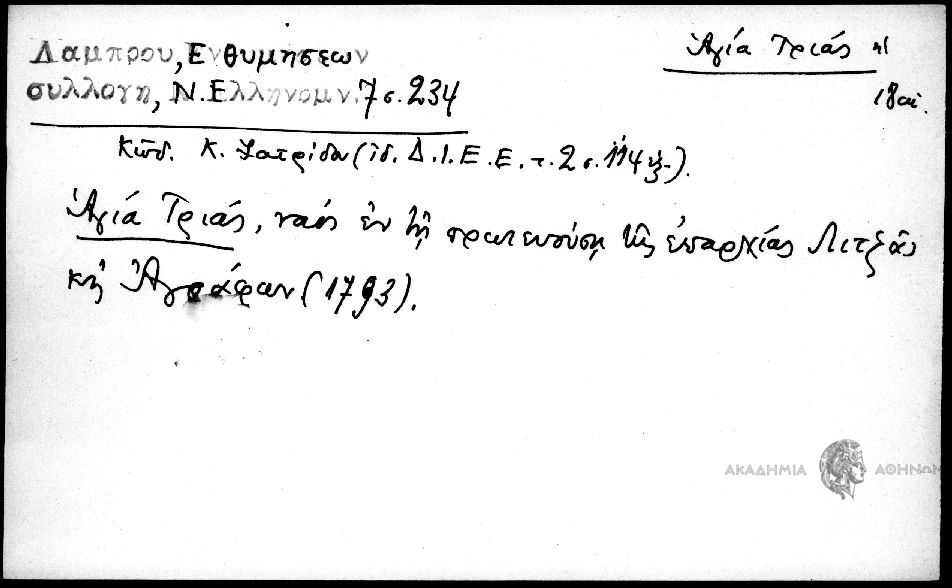 Λαμπρου, Ενθυμησεων
συλλογη, Ν. Ελληνομν. 7 σ. 234
Ἁγία Τριάς
18 αἰ.
Κώδ. Κ. (ἰδ. Δ.Ι.Ε.Ε. τ. 2 σ. 114 ἑξ.).
Ἁγία Τριάς, ναός ἐν τῇ πρωτευούσῃ τῆς ἐπαρχίας Λιτζᾶς
κὴ Ἀγράφων (1793).
ΑΚΑΔΗΜΙΑ ΑΘΗΝΩΝ